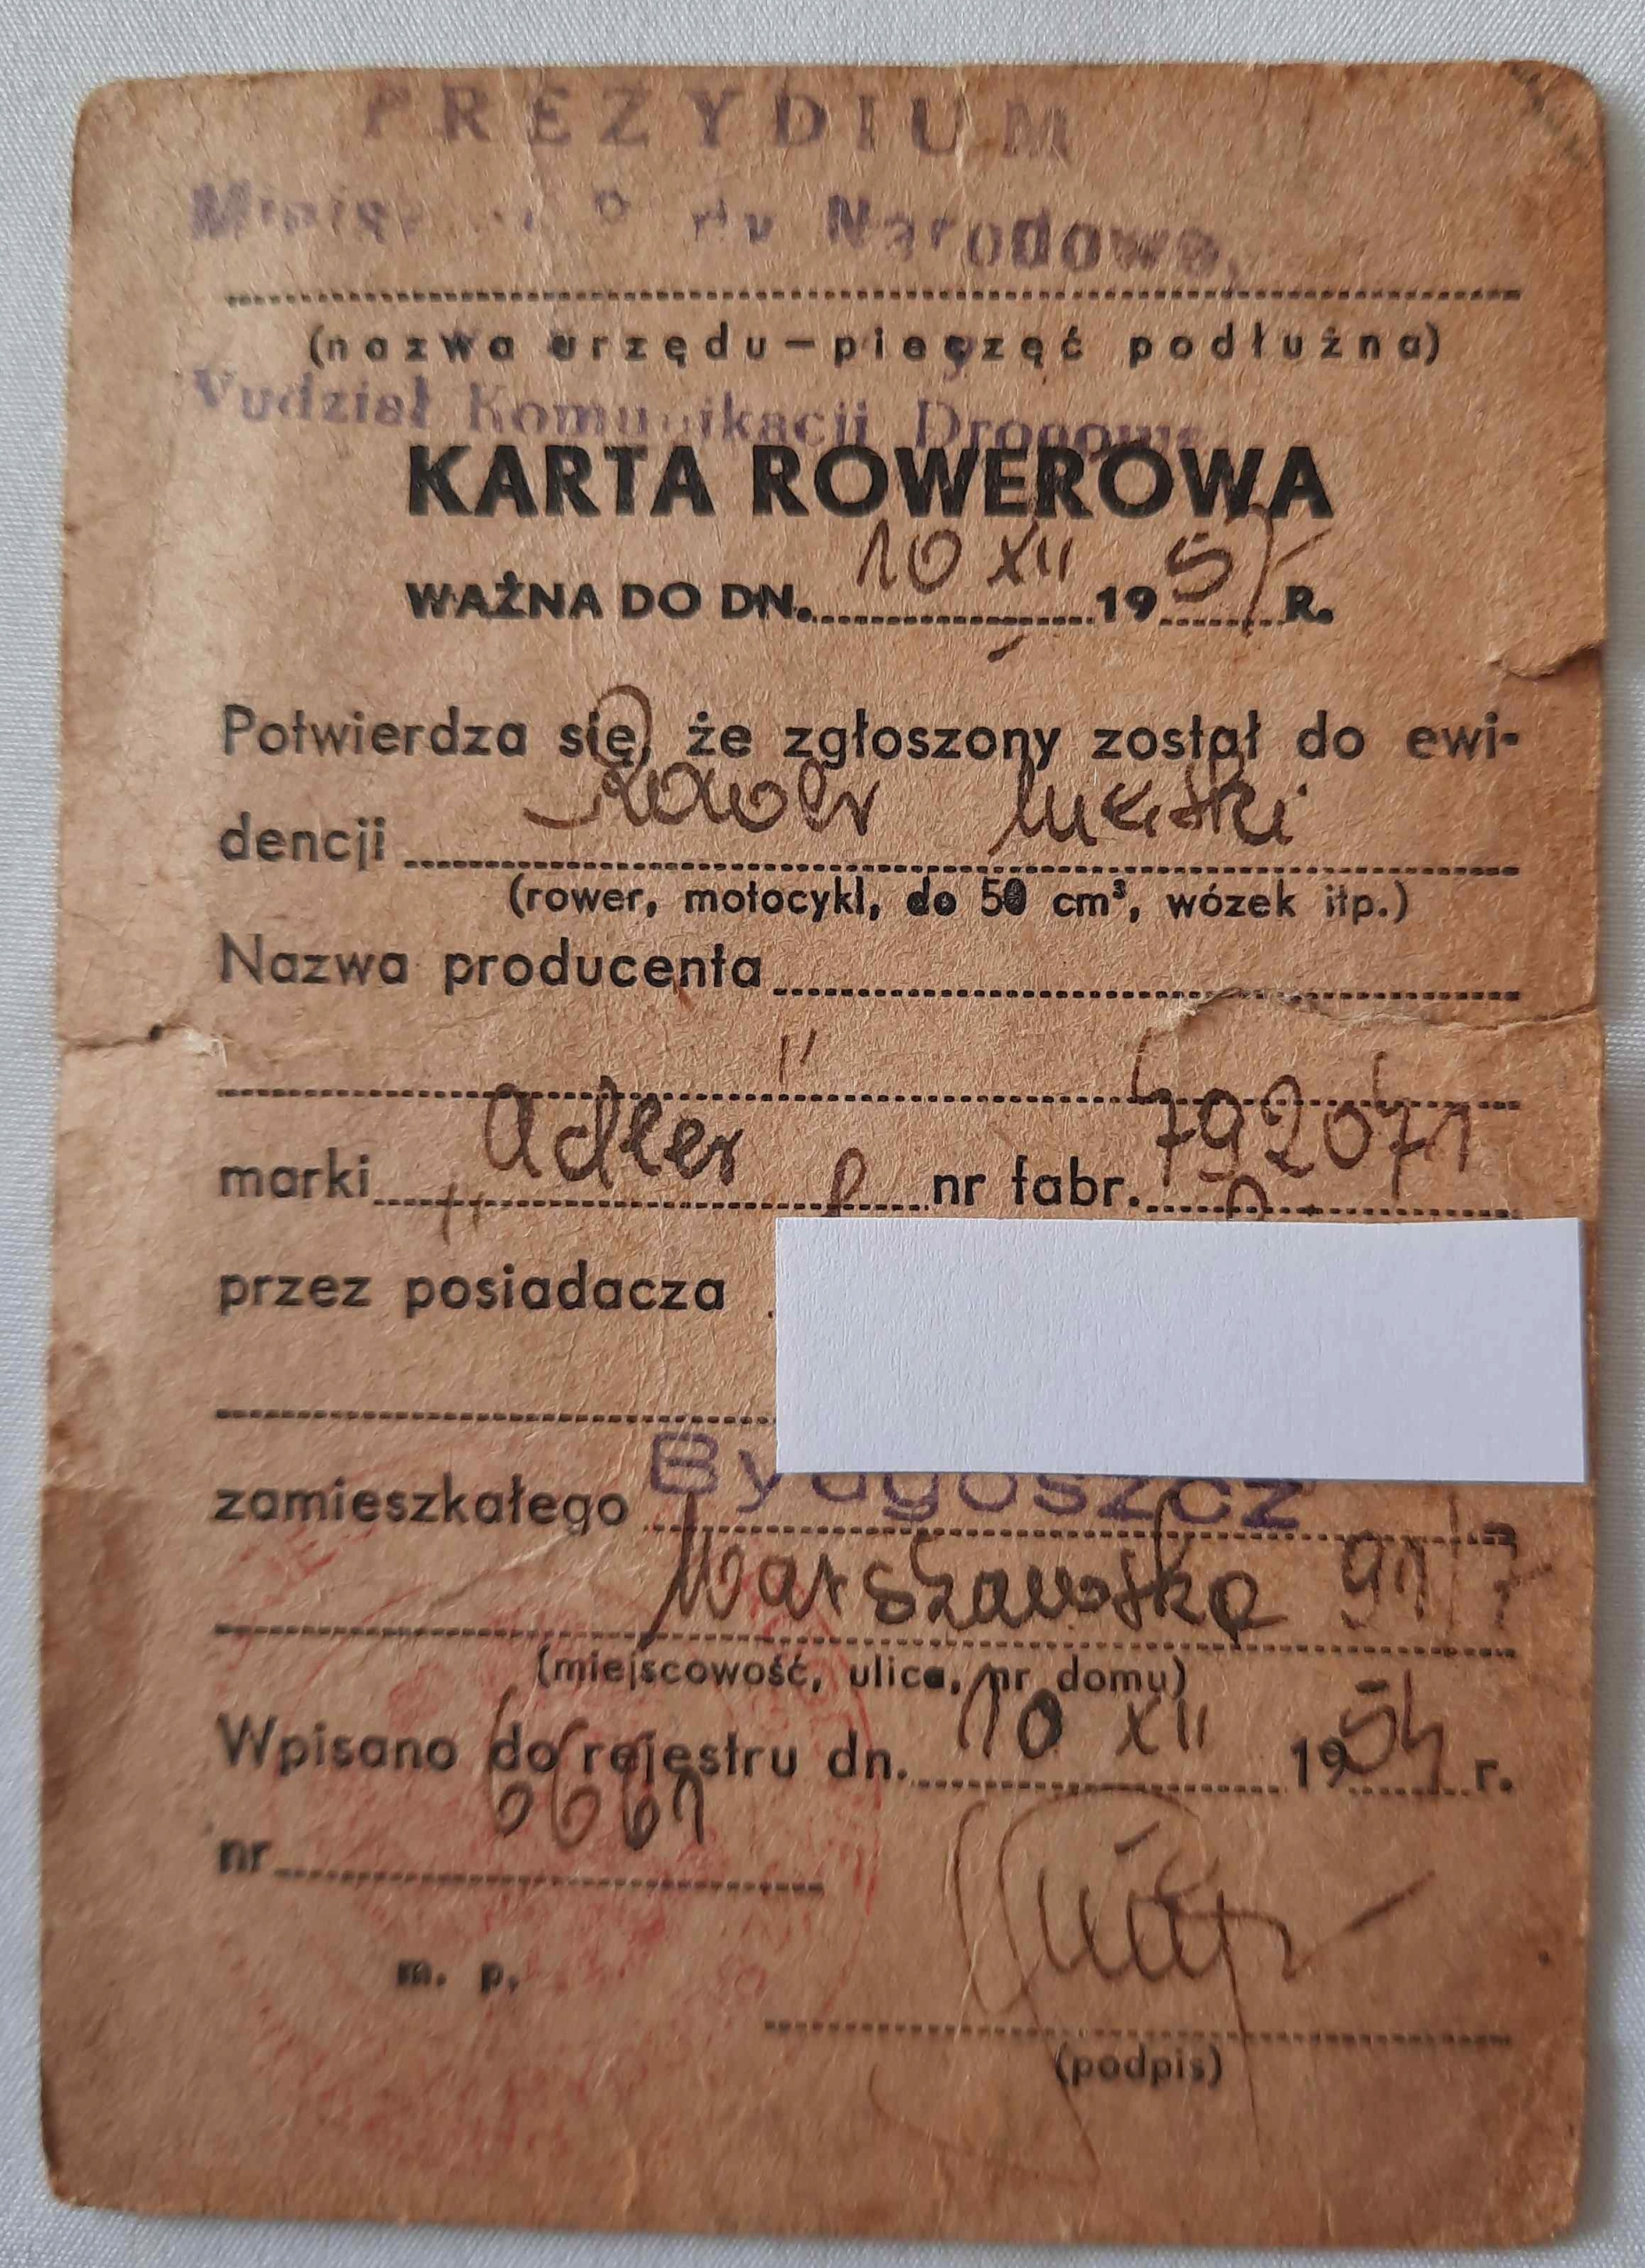 PREZYDIUM
Narodowe
(nazwa urzędu—pieczęć podłużna)
Wydział Komunikacji Drogowe
KARTA ROWEROWA
WAŻNA DO DN. 10 XII 1957 R.
Potwierdza się, że zgłoszony został do ewi-
dencji Rower męski
(rower, motocykl, do 50 cm³, wózek itp.)
Nazwa producenta
marki "Adler" nr fabr. 792071
przez posiadacza
zamieszkałego Bydgoszcz
Warszawska 91/7
(miejscowość, ulica, nr domu)
Wpisano do rejestru dn. 10 XII 1954 r.
nr 6661
m. p.
(podpis)